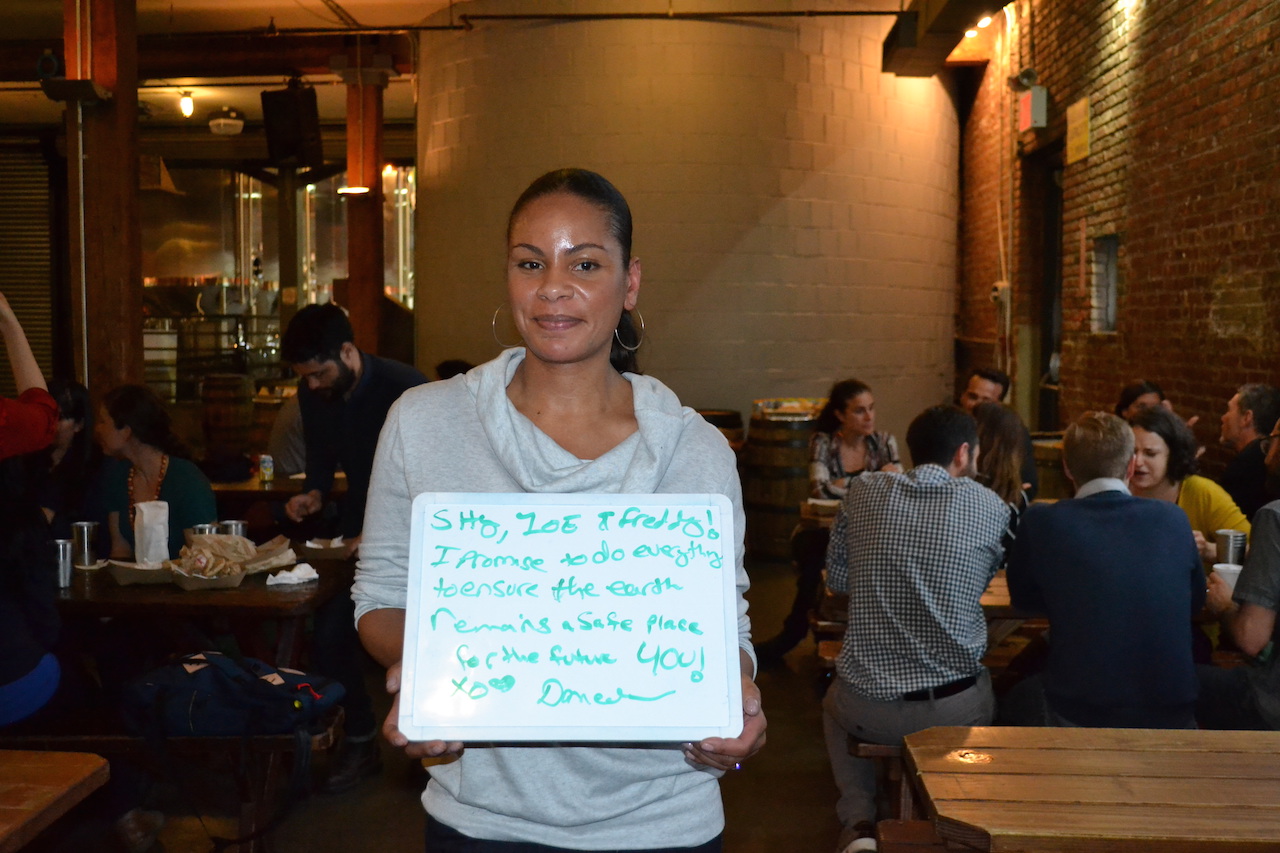 Shy, ZOE & Freddy!
I Promise to do everything
to ensure the earth
remains a safe place
for the future YOU!
XO